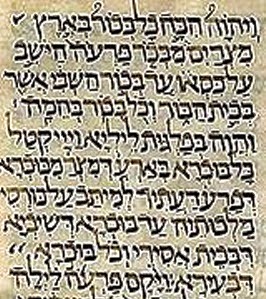 ויהוה הכה כל בכור בארץ
מצרים מבכר פרעה הישב
על כסאו עד בכור השבי אשר
בבית הבור וכל בכור בהמה
והוה בפלגות ליליא וייי קטל
כל בוכרא בארע דמצר מבוכרא
דפרעה דעתיד למיתב על כורסי
מלכותיה עד בוכרא דשביא
דבבית אסירי וכל בוכרא
דבעירא ויקם פרעה לילה